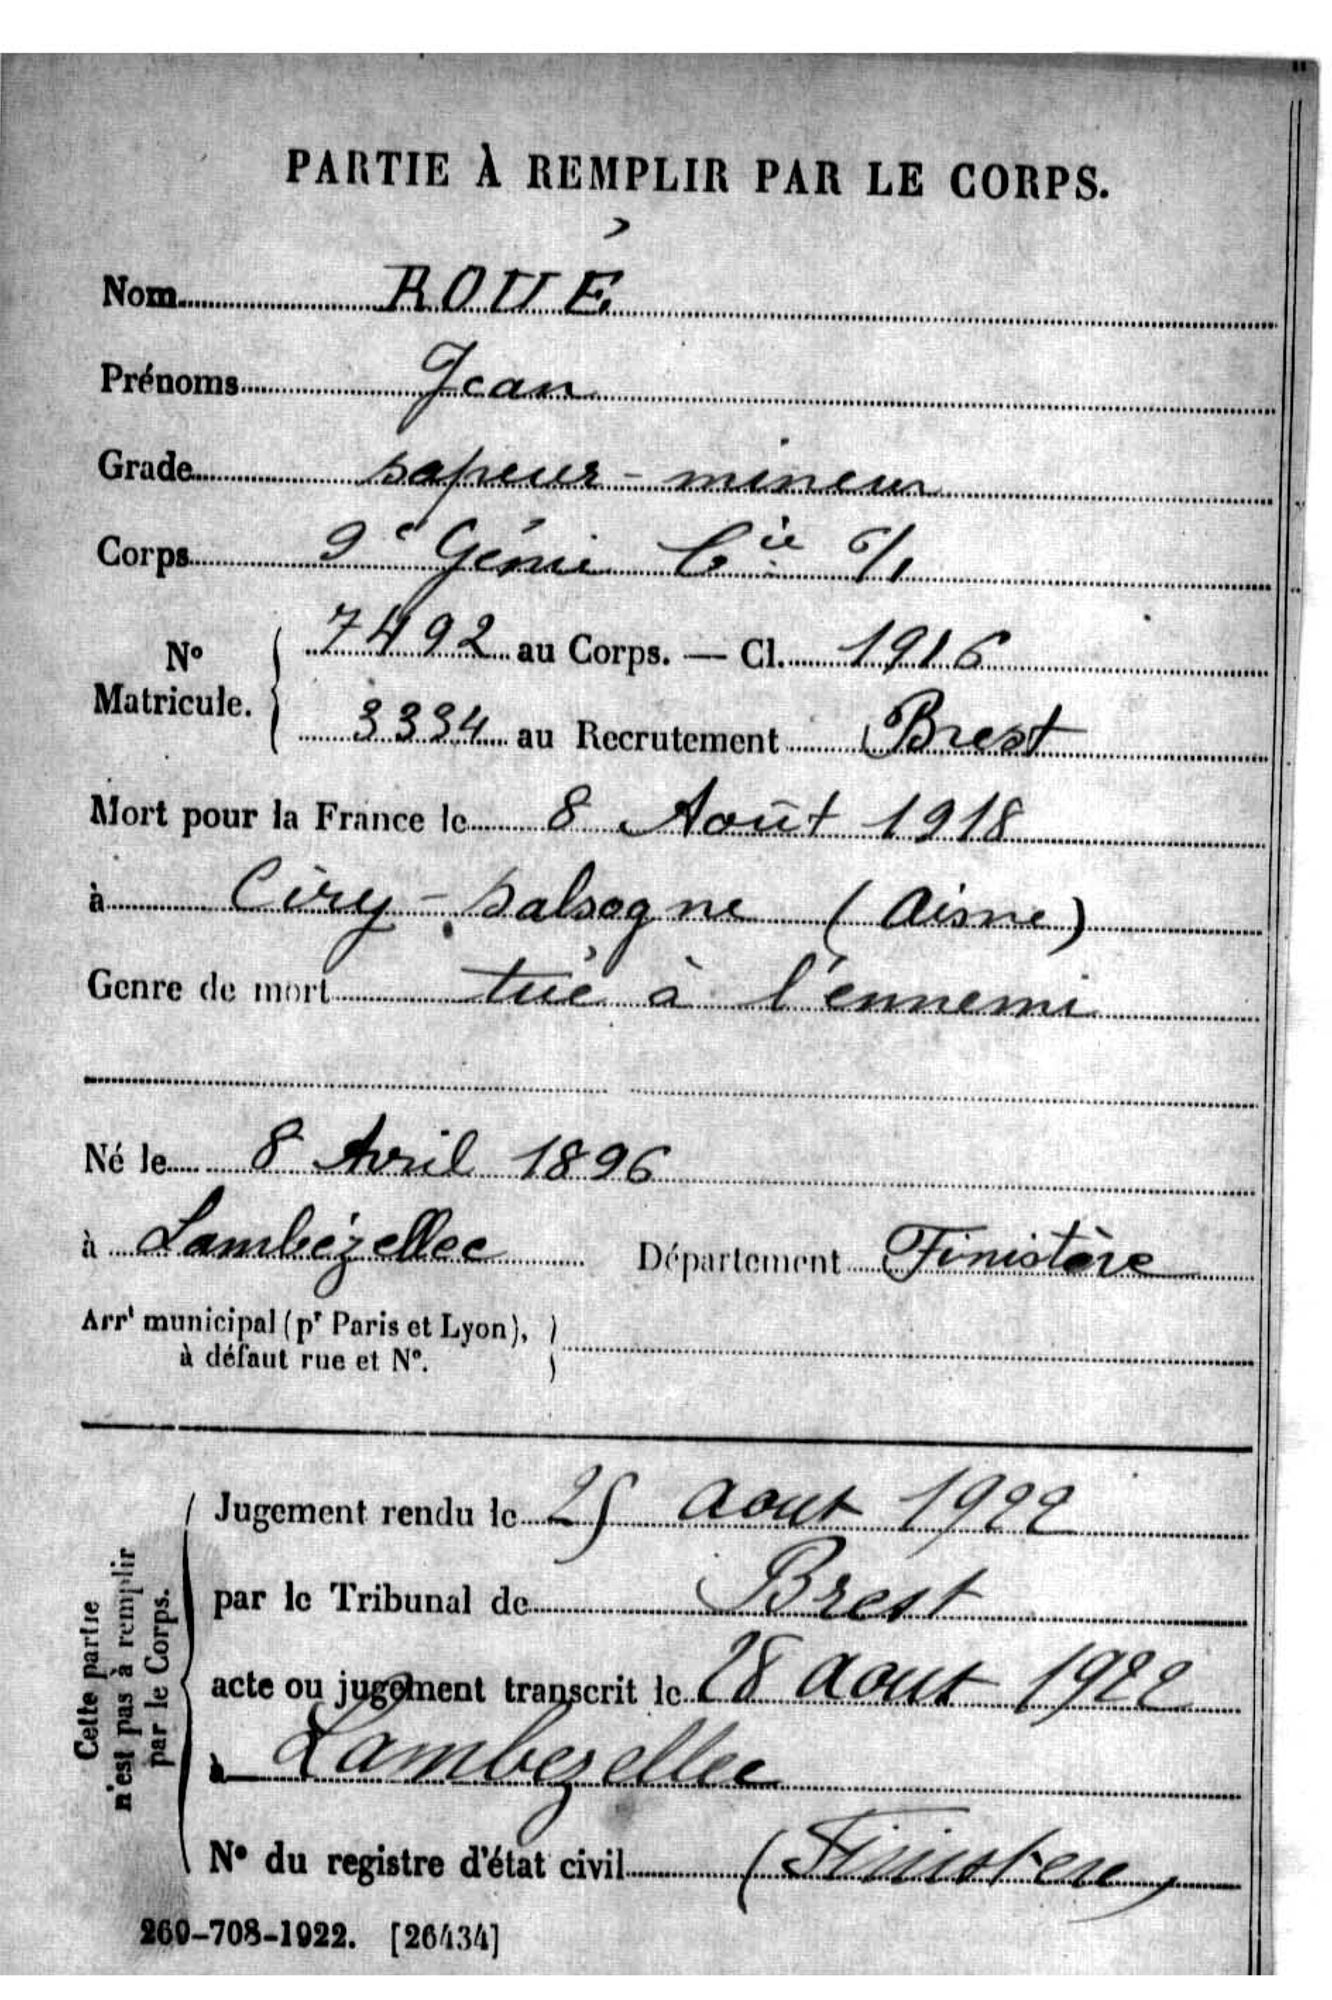 PARTIE À REMPLIR PAR LE CORPS.
Nom ROUÉ
Prénoms Jean
Grade sapeur-mineur
Corps 9e Génie Cie 6/1
N° Matricule. 7492 au Corps. — Cl. 1916
3334 au Recrutement Brest
Mort pour la France le 8 Août 1918
à Ciry-Salsogne (Aisne)
Genre de mort tué à l'ennemi
Né le 8 Avril 1896
à Lambézellec Département Finistère
Arrt municipal (pr Paris et Lyon),
à défaut rue et N°.
Cette partie
n'est pas à remplir
par le Corps.
Jugement rendu le 25 aout 1922
par le Tribunal de Brest
acte ou jugement transcrit le 28 aout 1922
à Lambezellec
N° du registre d'état civil (Finistere)
260-708-1922. [26434]